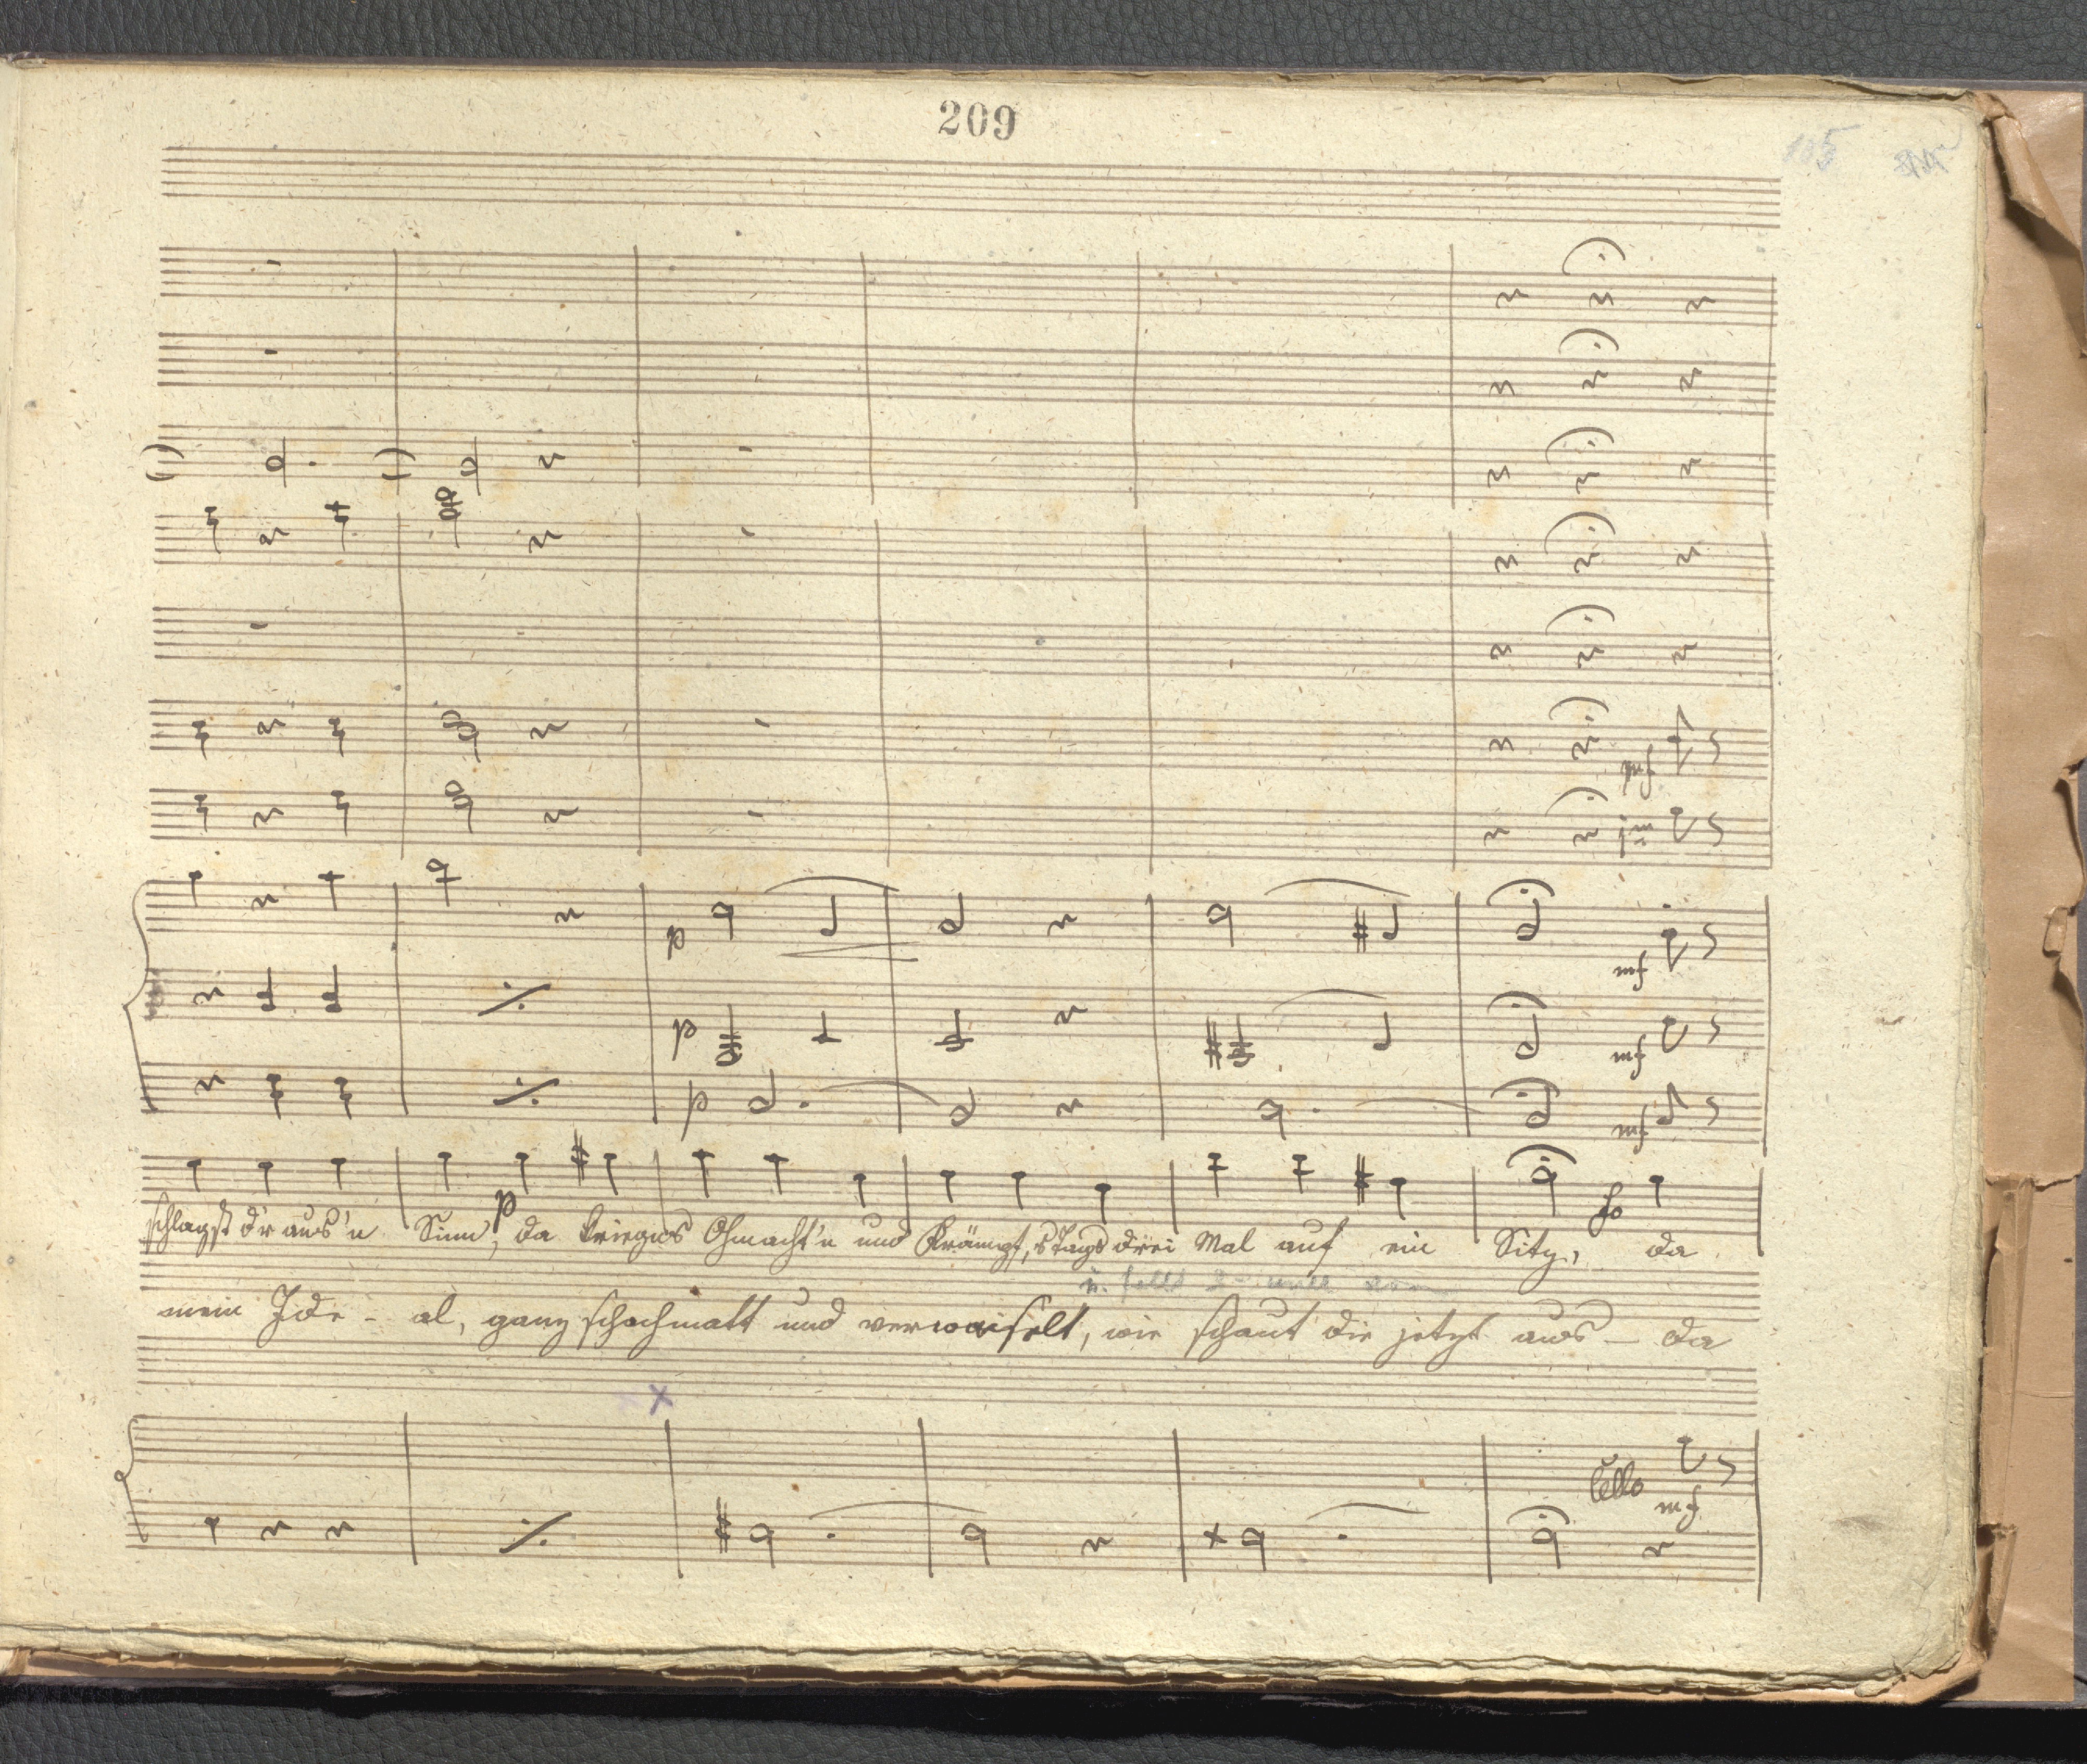 209
105
mf
p
mf
p
mf
p
mf
p
schlagst d'r aus'n Sinn, da kriegns Ohnmacht'n und Krämpf, 's Tags drei Mal auf ein Sitz, da
mein Ide - al, ganz schachmatt und verwaiselt, wie schaut die jetzt aus — da
Cello
mf